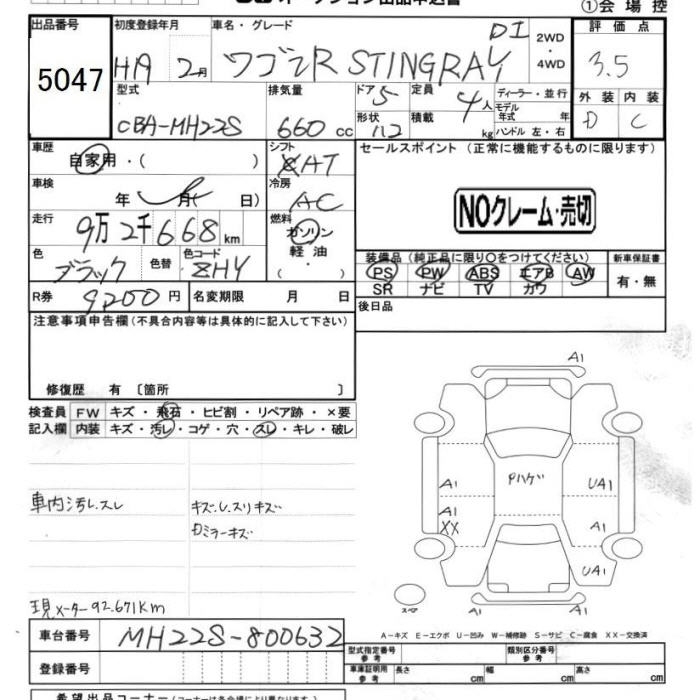 オークション出品申込書
①会場控
出品番号 初度登録年月 車名・グレード 評価点
5047 H19 2月 ワゴンR STINGRAY DI 2WD・4WD 3.5
型式 排気量 ドア 5 定員 4人 ディーラー・並行 外装 内装
CBA-MH22S 660cc 形状 積載 kg モデル年式 年 ハンドル 左・右 D C
車歴 シフト セールスポイント (正常に機能するものに限ります)
自家用・( ) AT
車検 年 月( 日) 冷房 AC
NOクレーム・売切
走行 9万2千668km 燃料 ガソリン・軽油・( )
色 ブラック 色替 色コード ZHY
装備品 (純正品に限り○をつけてください) 新車保証書
PS PW ABS エアB AW 有・無
SR ナビ TV カワ
R券 9200円 名変期限 月 日 後日品
注意事項申告欄(不具合内容等は具体的に記入して下さい)
修復歴 有 〔箇所 〕
検査員 FW キズ・飛石・ヒビ割・リペア跡・×要
記入欄 内装 キズ・汚レ・コゲ・穴・スレ・キレ・破レ
A1
Pハゲ
A1 UA1
A1 A1
XX
UA1
A1
スペア
車内汚レスレ キズUスリキズ
ミラーキズ
現メーター92.671Km
A-キズ E-エクボ U-凹み W-補修跡 S-サビ C-腐食 XX-交換済
車台番号 MH22S-800632
登録番号
型式指定番号 参考 類別区分番号 参考
車庫証明用 参考 長さ cm 幅 cm 高さ cm
希望出品コーナー